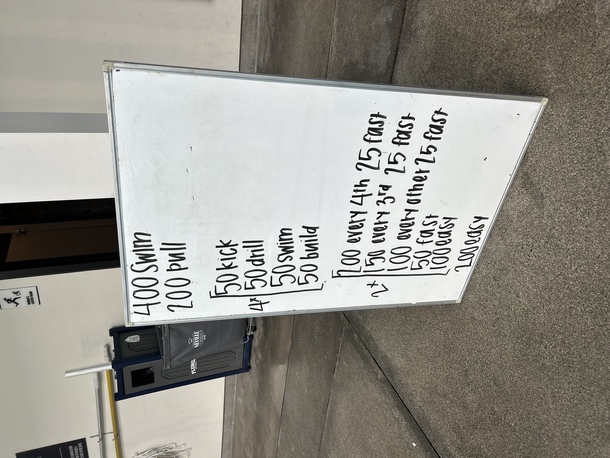 400 swim
200 pull
50 kick
4x 50 drill
50 swim
50 build
200 every 4th 25 fast
2x 150 every 3rd 25 fast
100 every other 25 fast
50 fast
100 easy
200 easy